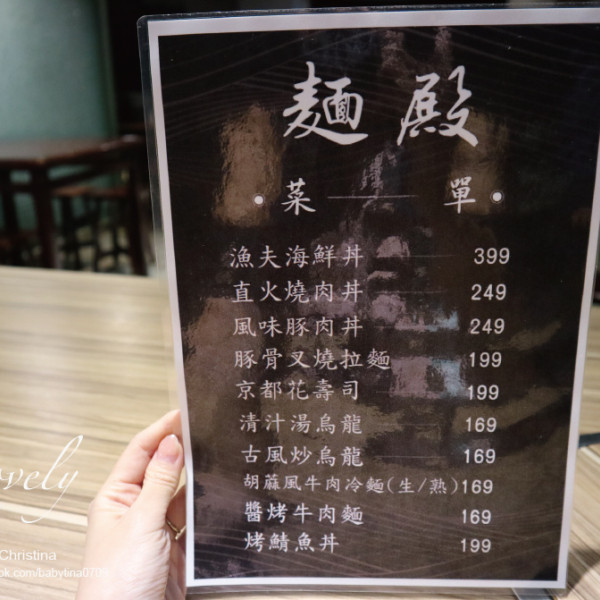 麵殿
• 菜 單 •
漁夫海鮮丼 399
直火燒肉丼 249
風味豚肉丼 249
豚骨叉燒拉麵 199
京都花壽司 199
清汁湯烏龍 169
古風炒烏龍 169
胡蔴風牛肉冷麵(生/熟) 169
醬烤牛肉麵 169
烤鯖魚丼 199
ovely
Christina
ok.com/babytina0709